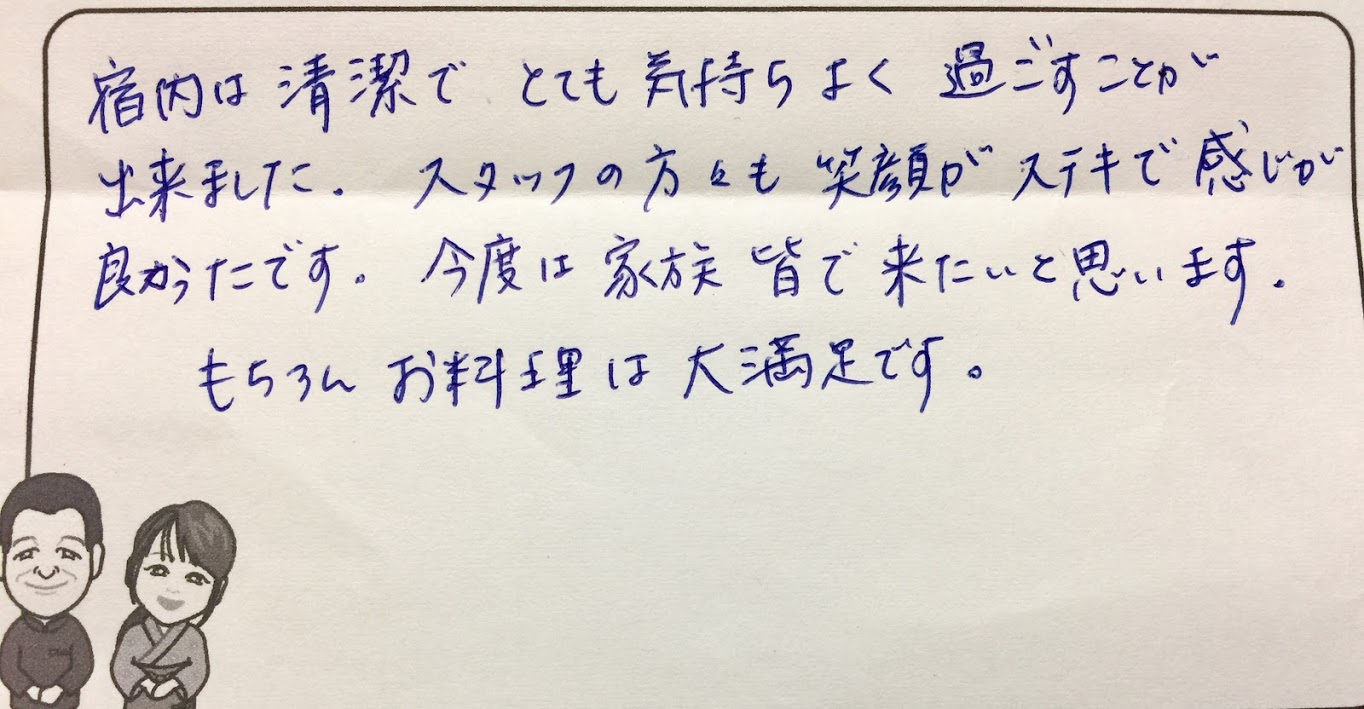 宿内は清潔で とても 気持ちよく 過ごすことが
出来ました. スタッフの方々も 笑顔が ステキで 感じが
良かったです。 今度は 家族 皆で 来たいと思います.
もちろん お料理は 大満足です。